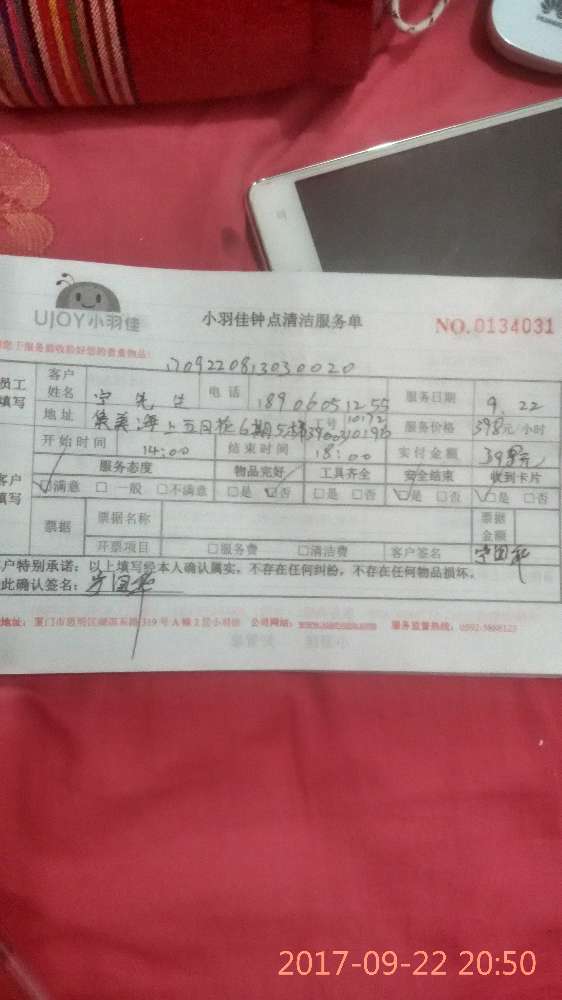 UJOY小羽佳
小羽佳钟点清洁服务单
NO.0134031
您下服务前收拾好您的贵重物品:
1709220813030020
员工填写
客户姓名 宁先生 电话 18906051255 服务日期 9.22
地址 集美海上五月花6期 服务价格 398元/小时
开始时间 14:00 结束时间 18:00 实付金额 398元
客户填写
服务态度 物品完好 工具齐全 安全结束 收到卡片
☑满意 □一般 □不满意 □是 ☑否 □是 □否 ☑是 □否 ☑是 □否
票据 票据名称 票据金额
开票项目 □服务费 □清洁费 客户签名
客户特别承诺:以上填写经本人确认属实,不存在任何纠纷,不存在任何物品损坏。
此确认签名:
地址:厦门市思明区湖滨东路319号A幢2层小羽佳 公司网站: 服务监督热线:0592-5868123
2017-09-22 20:50